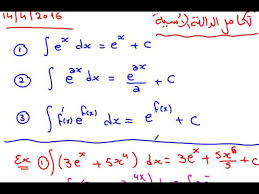 14/4/2016
تكامل الدالة الأسية
① ∫ e^x dx = e^x + C
② ∫ e^{ax} dx = e^{ax}/a + C
③ ∫ f'(x) e^{f(x)} dx = e^{f(x)} + C
Ex ① ∫ (3e^x + 5x^4) dx = 3e^x + 5x^5/5 + C